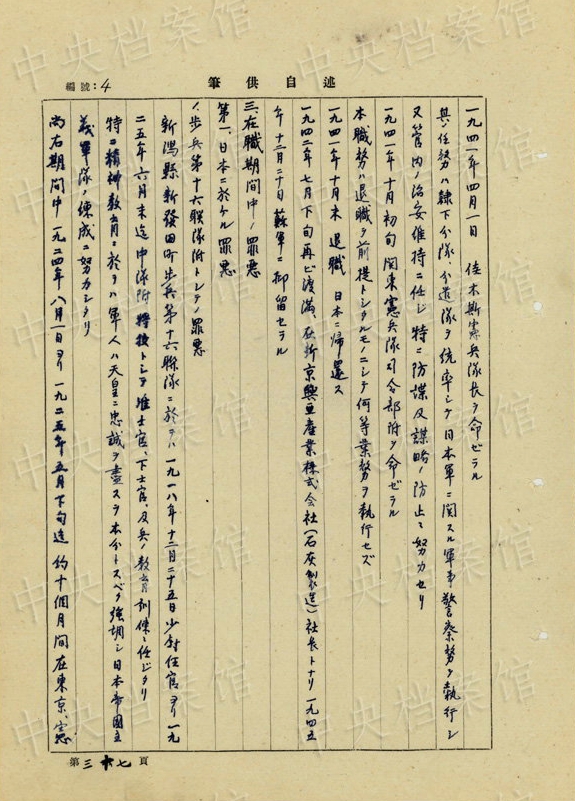 編號:4
筆供自述
一九四一年四月一日 佳木斯憲兵隊長ヲ命ゼラル
其ノ任務ハ隷下分隊、分遣隊ヲ統率シテ日本軍ニ関スル軍事警察務ヲ執行シ
又管内ノ治安維持ニ任ジ特ニ防諜及謀略ノ防止ニ努力セリ
一九四一年十月初旬関東憲兵隊司令部附ヲ命ゼラル
本職務ハ退職ヲ前提トシタルモノニシテ何等業務ヲ執行セズ
一九四一年十月末 退職 日本ニ帰還ス
一九四二年七月下旬再ビ渡満、在新京興亜産業株式会社(石灰製造)社長トナリ一九四五
年十二月二十日蘇軍ニ抑留セラル
三、在職期間中ノ罪悪
第一、日本ニ於ケル罪悪
1.歩兵第十六聯隊附トシテノ罪悪
新潟縣新發田町歩兵第十六聯隊ニ於テハ一九一八年十二月二十五日少尉任官ヨリ一九
二五年六月末迄中隊附将校トシテ准士官、下士官、及兵ノ教育訓練ニ任ジタリ
特ニ精神教育ニ於テハ軍人ハ天皇ニ忠誠ヲ盡スヲ本分トスベク強調シ日本帝國主
義軍隊ノ練成ニ努力シタリ
尚右期間中一九二四年八月一日ヨリ一九二五年五月下旬迄約十個月間在東京、憲
第三十七頁
中央档案馆